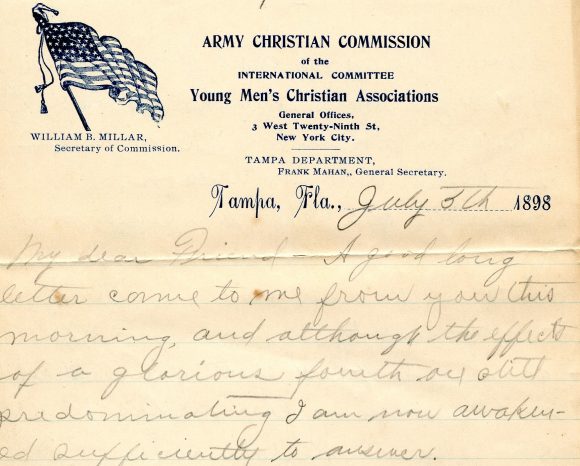 ARMY CHRISTIAN COMMISSION
of the
INTERNATIONAL COMMITTEE
Young Men's Christian Associations
General Offices,
3 West Twenty-Ninth St,
New York City.
WILLIAM B. MILLAR,
Secretary of Commission.
TAMPA DEPARTMENT,
FRANK MAHAN,, General Secretary.
Tampa, Fla., July 5th 1898
My dear Friend - A good long
letter come to me from you this
morning, and although the effects
of a glorious fourth are still
predominating I am now awaken-
ed sufficiently to answer.